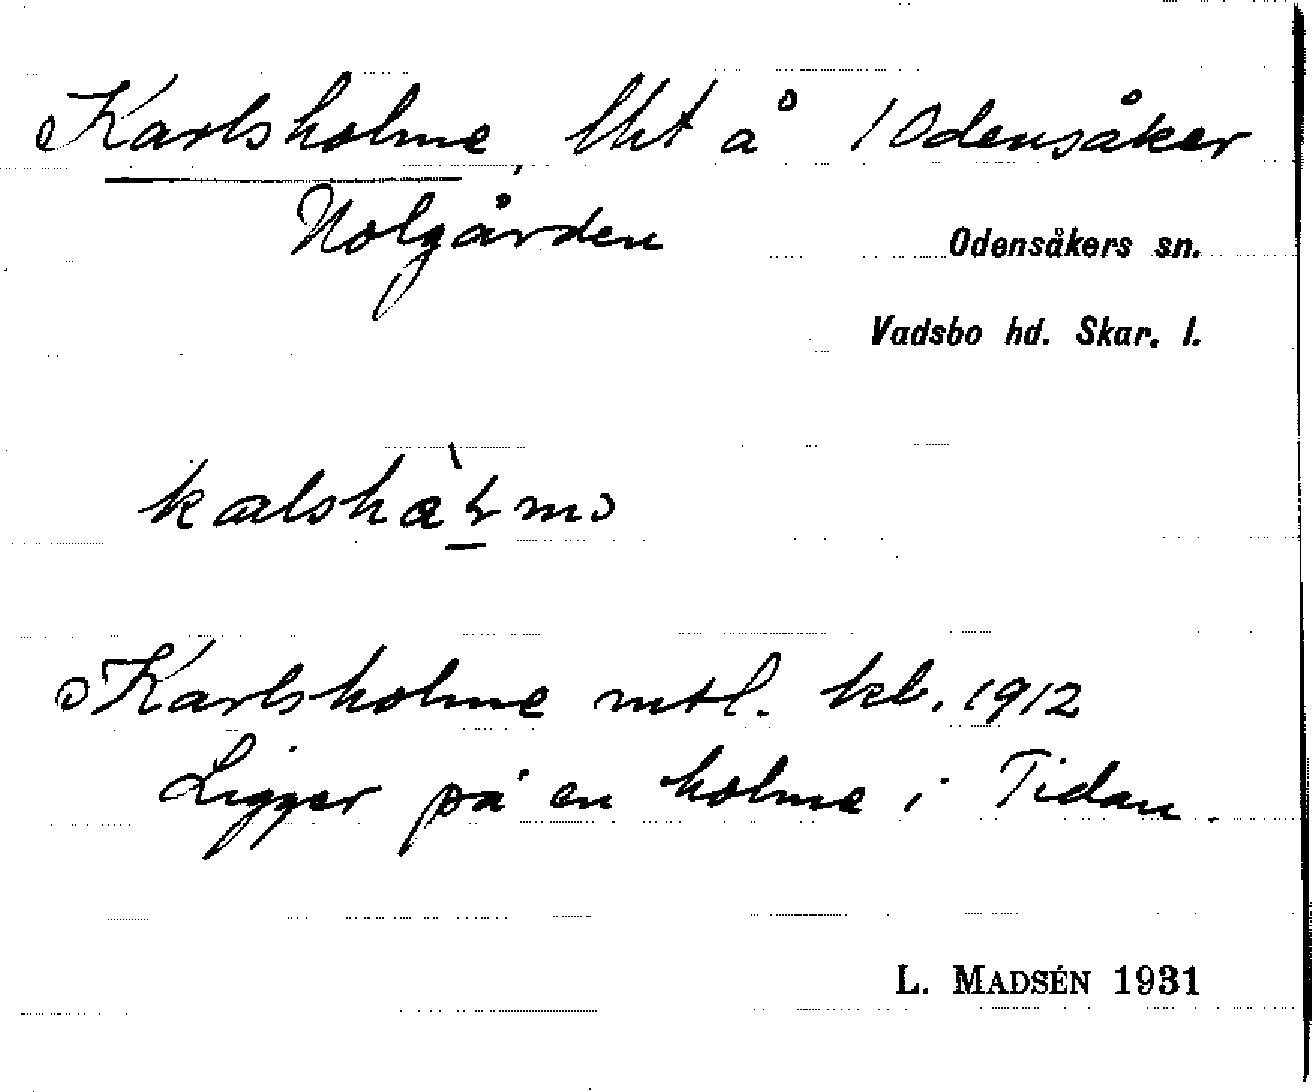 Karlsholme, lht å 1 Odensåker
Nolgården
Odensåkers sn.
Vadsbo hd. Skar. l.
Karlsholme mtl. kl. 1912
Ligger på en holme i Tidan.
L. MADSÉN 1931